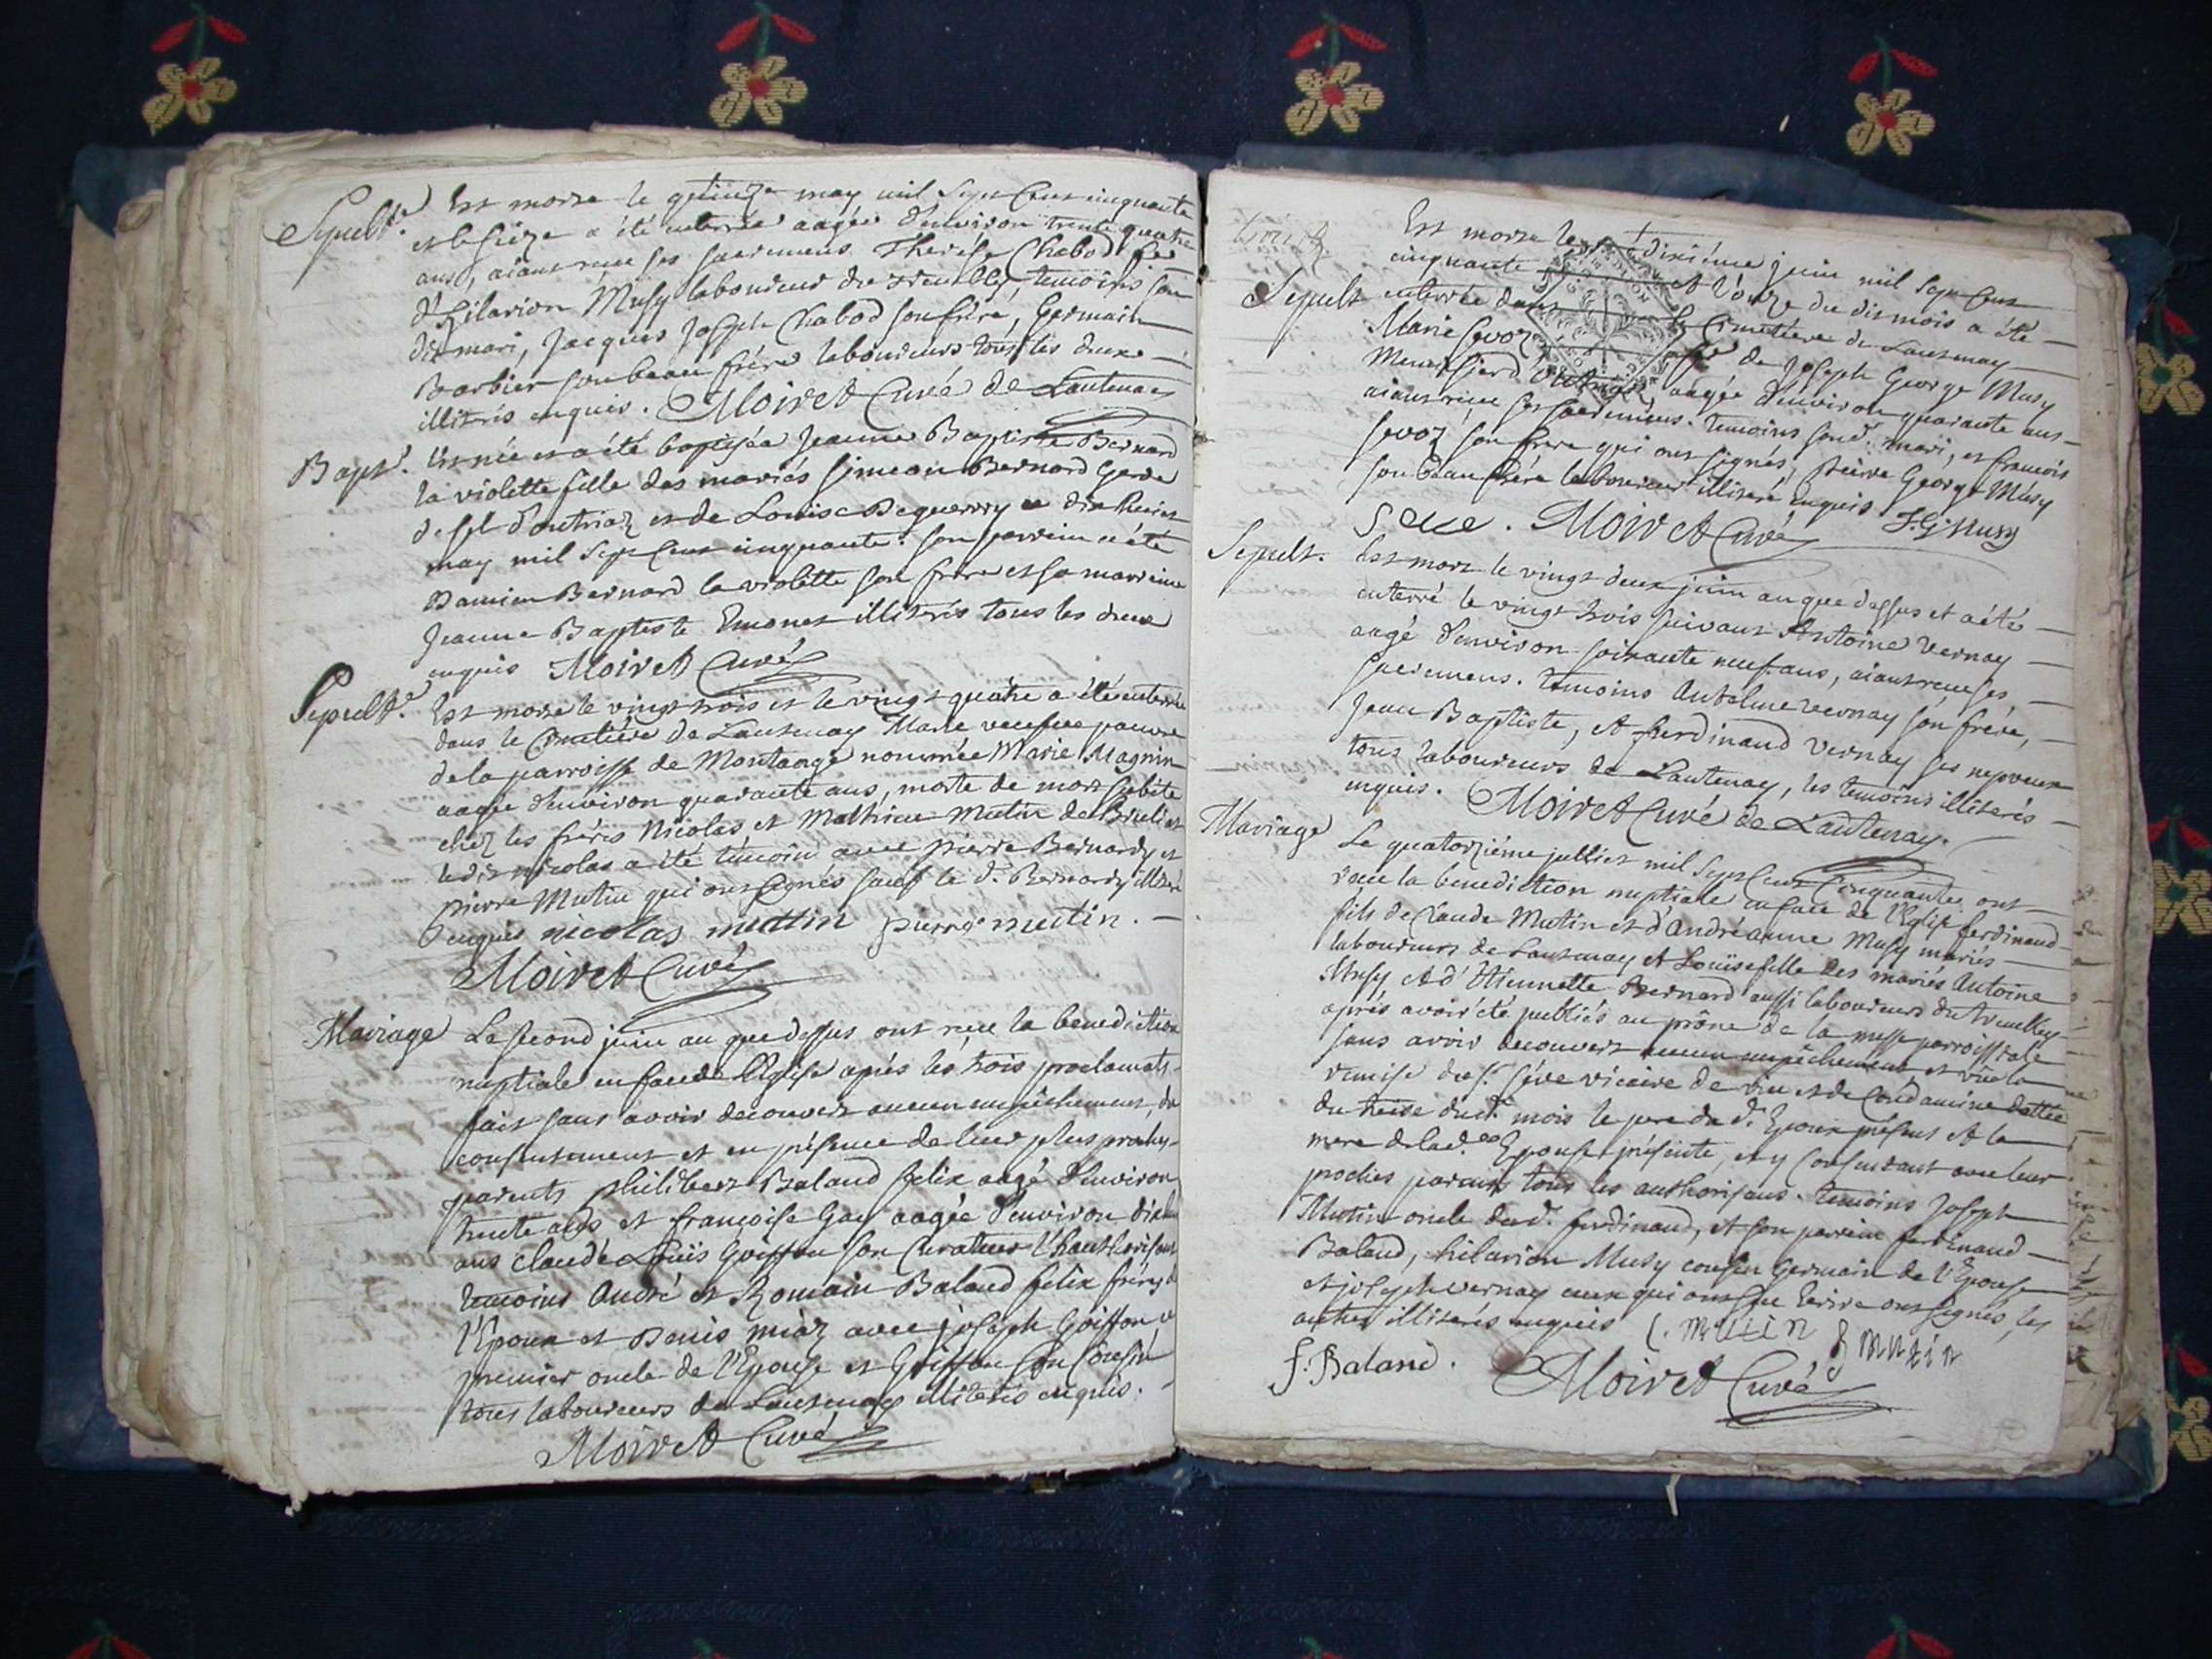 Sepult.re Est morte le quinze may mil sept cent cinquante
et le seize a été enterrée aagée d'environ trente quatre
ans, aiant receu ses sacremens Therése Chabod fe.
d'hilarion Musy laboureur du tremblay, temoins son
dit mari, Jacques Joseph Chabod son frére, Germain
Barbier son beau frére laboureurs tous les deux
illiterés enquis. Moiret Curé de Lantenay
Bapt.e Est née et a été baptisée Jeanne Baptiste Bernard
la violette fille des mariés simeon Bernard Garde
de sel d'outriaz et de Louise Beguerry le dix huict
may mil sept cent cinquante. son parrein a été
Damien Bernard la violette son frére et sa marreine
Jeanne Baptiste Emonet illiterés tous les deux
enquis Moiret Curé
Sepult.re Est morte le vingt trois et le vingt quatre a été enterrée
dans le Cimetiére de Lantenay Marie pauvre
de la parroisse de Montange nommée Marie Magnin
aagée d'environ quarante ans, morte de mort subite
chez les fréres Nicolas et Mathieu Mutin de
ledit nicolas a été témoin avec pierre Bernardy et
pierre Mutin qui ont signés sauf le d. Bernardy illiteré
enquis nicolas mutin pierre mutin.
Moiret Curé
Mariage Le second juin an que dessus ont receu la benediction
nuptiale en face de l'Eglise aprés les trois proclamats
fait sans avoir decouvert aucun empêchement, du
consentement et en présence de leur plus proches
parents philibert Baland felix aagé d'environ
trente ans et françoise Gay aagée d'environ
ans claude Louïs Goiffon son Curateur l'hauthorisant
temoins André et Romain Baland felix fréres de
l'Epoux et Denis miaz avec joseph Goiffon
premier oncle de l'Epouse et Goiffon son Cousin
tous laboureurs de Lantenay illiterés enquis.
Moiret Curé
Est morte le dixiéme juin mil sept cent
cinquante et l'onze du dit mois a été
Sepult enterrée dans le Cimetiére de Lantenay
Marie sevoz de Joseph George Musy
aagée d'environ quarante ans
aiant receu ses sacremens. temoins sond. mari, et francois
sevoz son frere qui ont signés, pierre George Musy
son beau frére laboureur illiteré enquis J:G:Musy
Moiret Curé
Sepult. Est mort le vingt deux juin an que dessus et a été
enterré le vingt trois suivant Antoine Vernay
aagé d'environ soixante neuf ans, aiant receu ses
sacremens. temoins Antelme vernay son frére,
Jean Baptiste, et ferdinand Vernay ses nepveux
tous laboureurs de Lantenay, les temoins illiterés
enquis. Moiret Curé de Lantenay.
Mariage Le quatorziéme julliet mil sept cent Cinquante ont
receu la benediction nuptiale en face de l'Eglise ferdinand
fils de Claude Mutin et d'andréanne Musy mariés
laboureurs de Lantenay et Louïse fille des mariés Antoine
Musy et d'Etiennette Bernard aussi laboureurs du tremblay
aprés avoir été publiés au prône de la messe parroissiale
sans avoir decouvert aucun empêchement et vûe la
remise du s.r séve vicaire de vieu et de Condamine dattée
du treize dud. mois le pere du d. Epoux présent et la
mere de lad. Epouse présente, et y consentant avec leur
proches parens tous les authorisans. temoins Joseph
Mutin oncle dud. ferdinand, et son parrein ferdinand
Baland, hilarion Musy cousin germain de l'Epouse
et joseph vernay ceux qui ont sceu Ecrire ont signés, les
autres illiterés enquis C. mutin J mutin
f. Baland. Moiret Curé